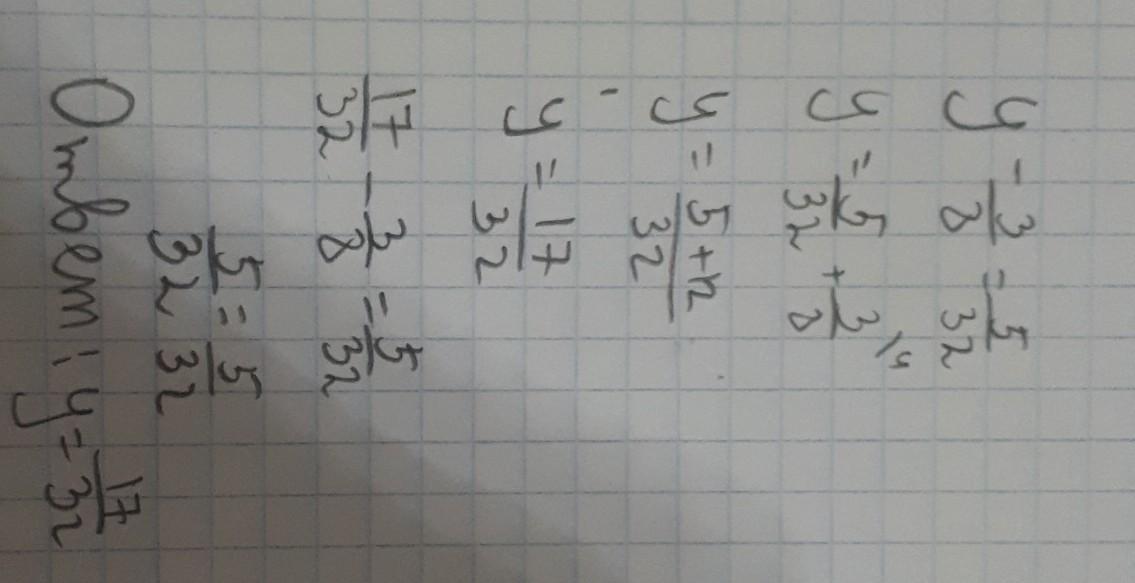 y - 3/8 = 5/32
y = 5/32 + 3/8 \4
y = 5+12/32
y = 17/32
17/32 - 3/8 = 5/32
5/32 = 5/32
Ответ: y = 17/32